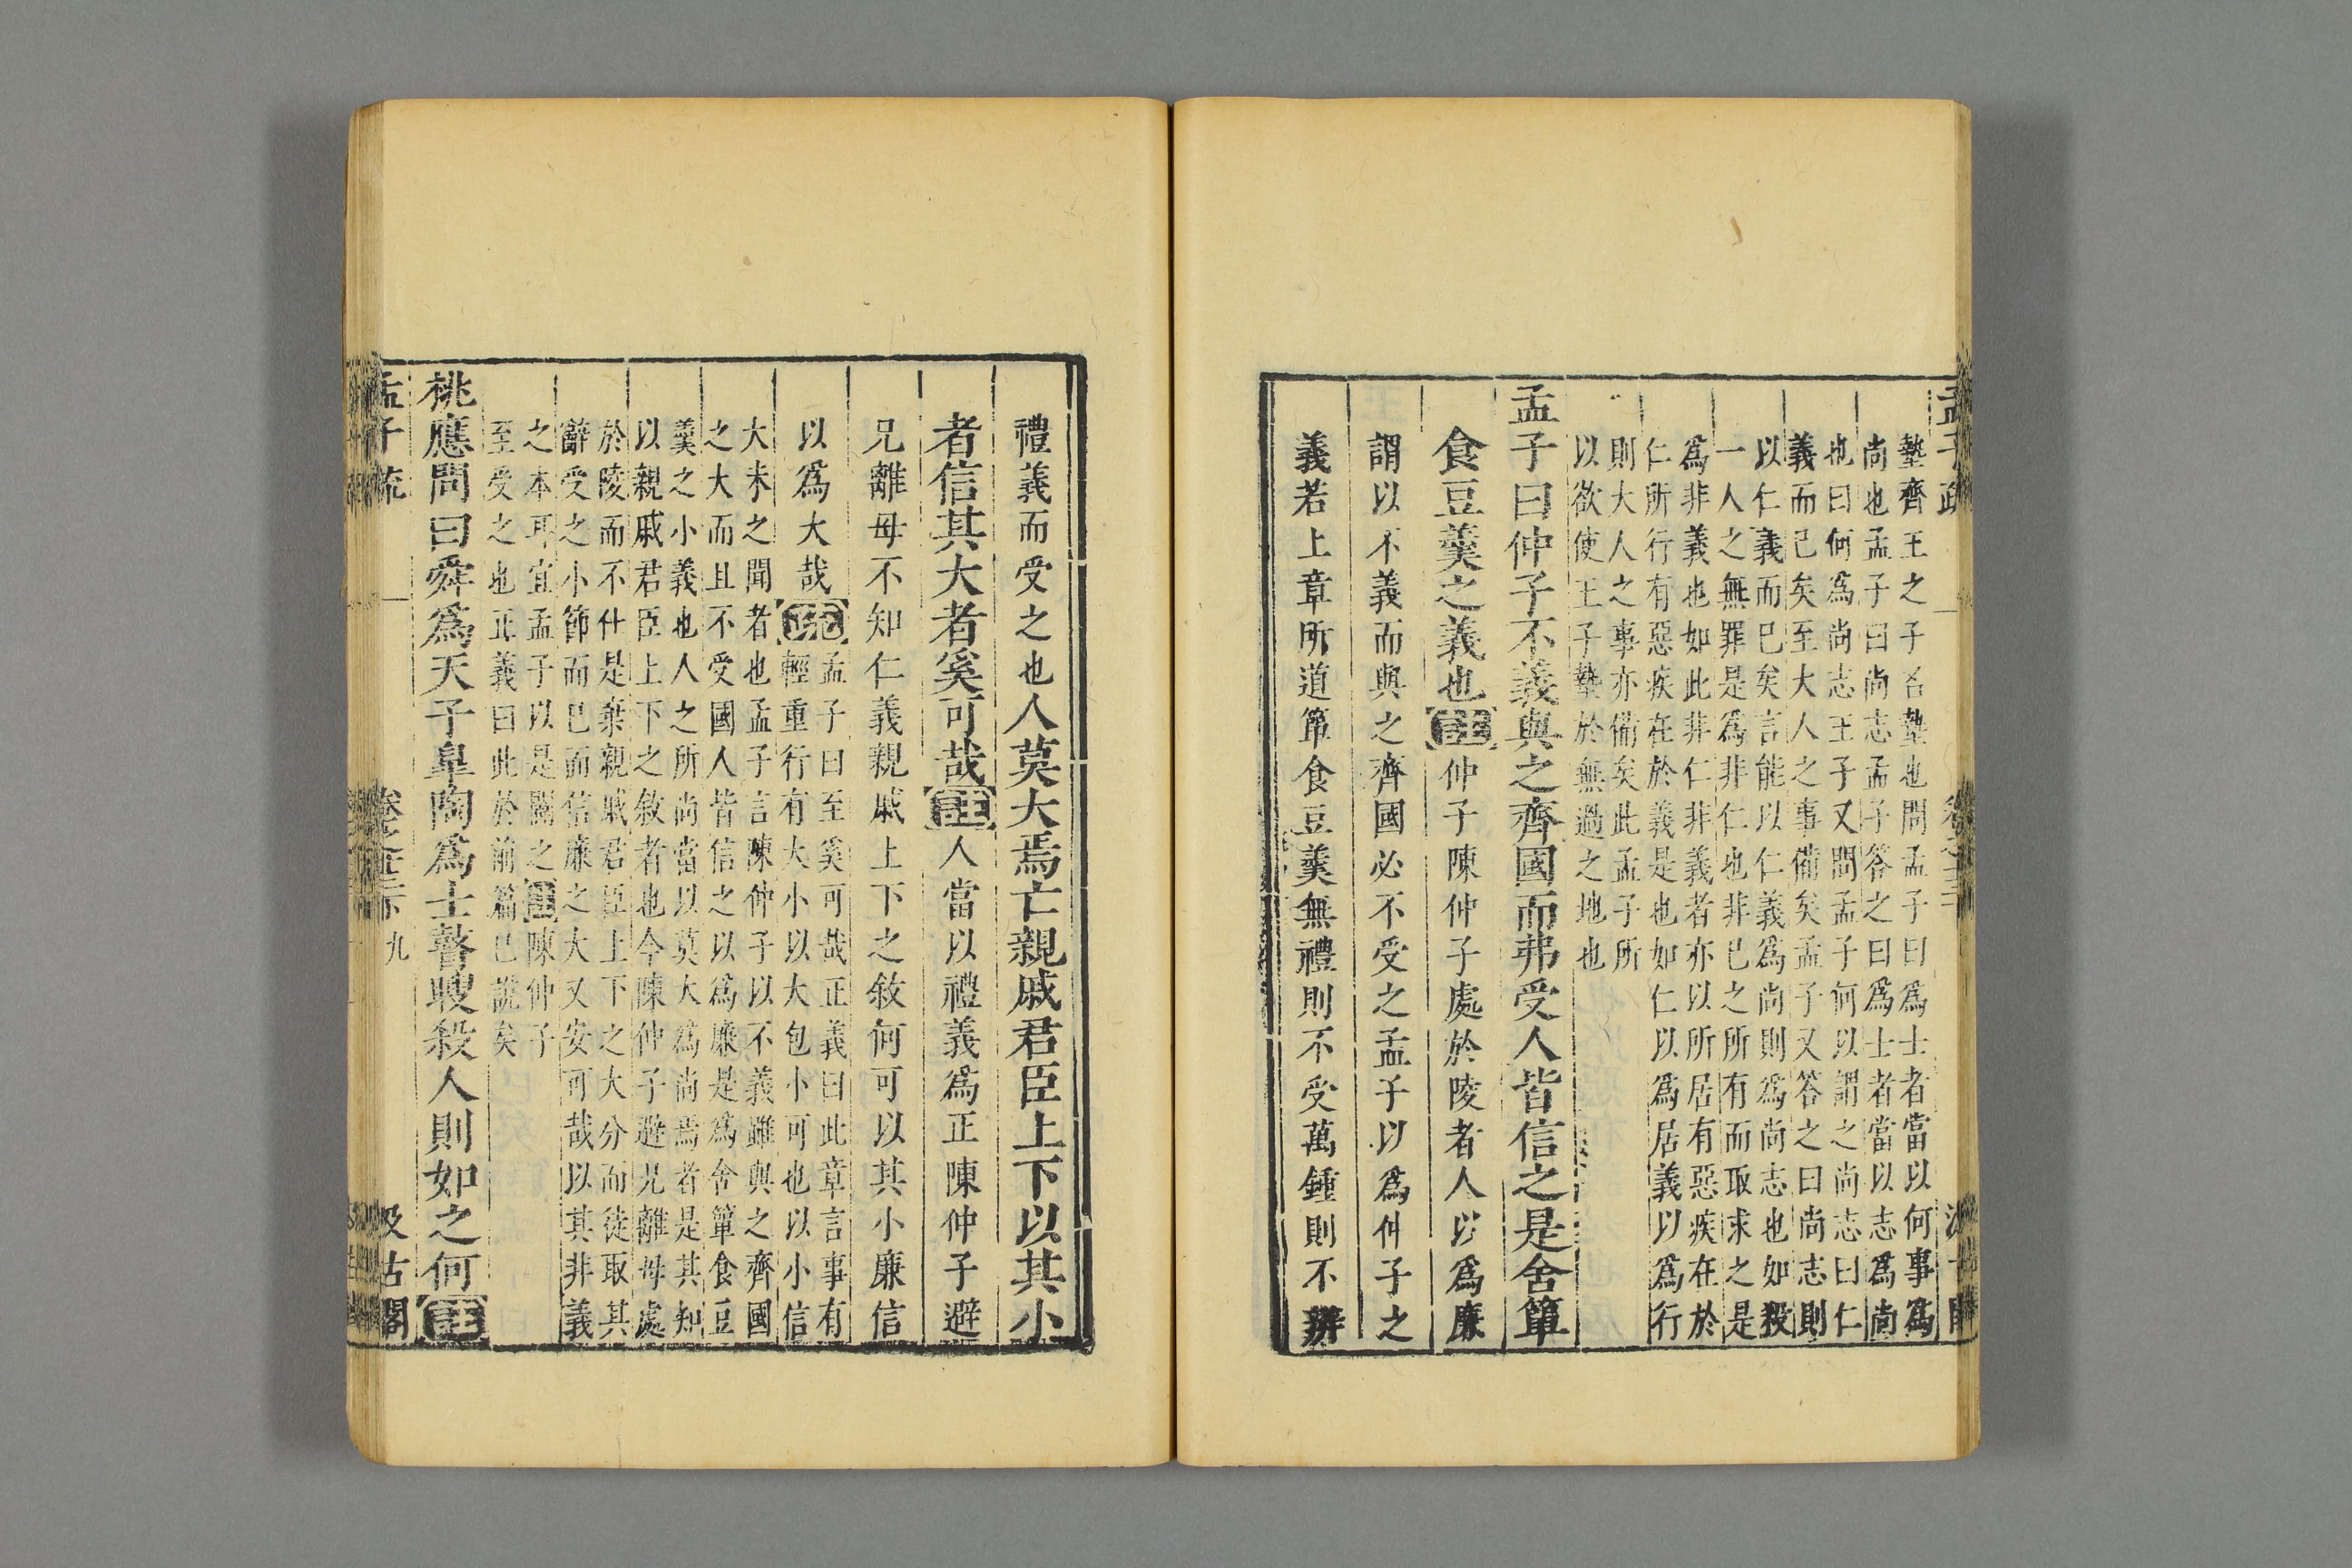 孟子疏
墊齊王之子名墊也問孟子曰爲士者當以何事爲
尚也孟子曰尚志孟子答之曰爲士者當以志爲尚
也曰何爲尚志王子又問孟子何以謂之尚志曰仁
義而已矣至大人之事備矣孟子又答之曰尚志則
以仁義而已矣言能以仁義爲尚則爲尚志也如殺
一人之無罪是爲非仁也非已之所有而取求之是
爲非義也如此非仁非義者亦以所居有惡疾在於
仁所行有惡疾在於義是也如仁以爲居義以爲行
則大人之事亦備矣此孟子所
以欲使王子墊於無過之地也
孟子曰仲子不義與之齊國而弗受人皆信之是舍簞
食豆羹之義也註仲子陳仲子處於陵者人以爲廉
謂以不義而與之齊國必不受之孟子以爲仲子之
義若上章所道簞食豆羹無禮則不受萬鍾則不辨
禮義而受之也人莫大焉亡親戚君臣上下以其小
者信其大者奚可哉註人當以禮義爲正陳仲子避
兄離母不知仁義親戚上下之敘何可以其小廉信
以爲大哉疏孟子曰至奚可哉正義曰此章言事有
輕重行有大小以大包小可也以小信
大未之聞者也孟子言陳仲子以不義雖與之齊國
之大而且不受國人皆信之以爲廉是爲舍簞食豆
羹之小義也人之所尚當以莫大爲尚焉者是其知
以親戚君臣上下之敘者也今陳仲子避兄離母處
於陵而不仕是棄親戚君臣上下之大分而徒取其
辭受之小節而已而信廉之大又安可哉以其非義
之本耳宜孟子以是闢之註陳仲子
至受之也正義曰此於前篇已説矣
桃應問曰舜爲天子皐陶爲士瞽瞍殺人則如之何註
孟子疏 卷之十三下 九 汲古閣